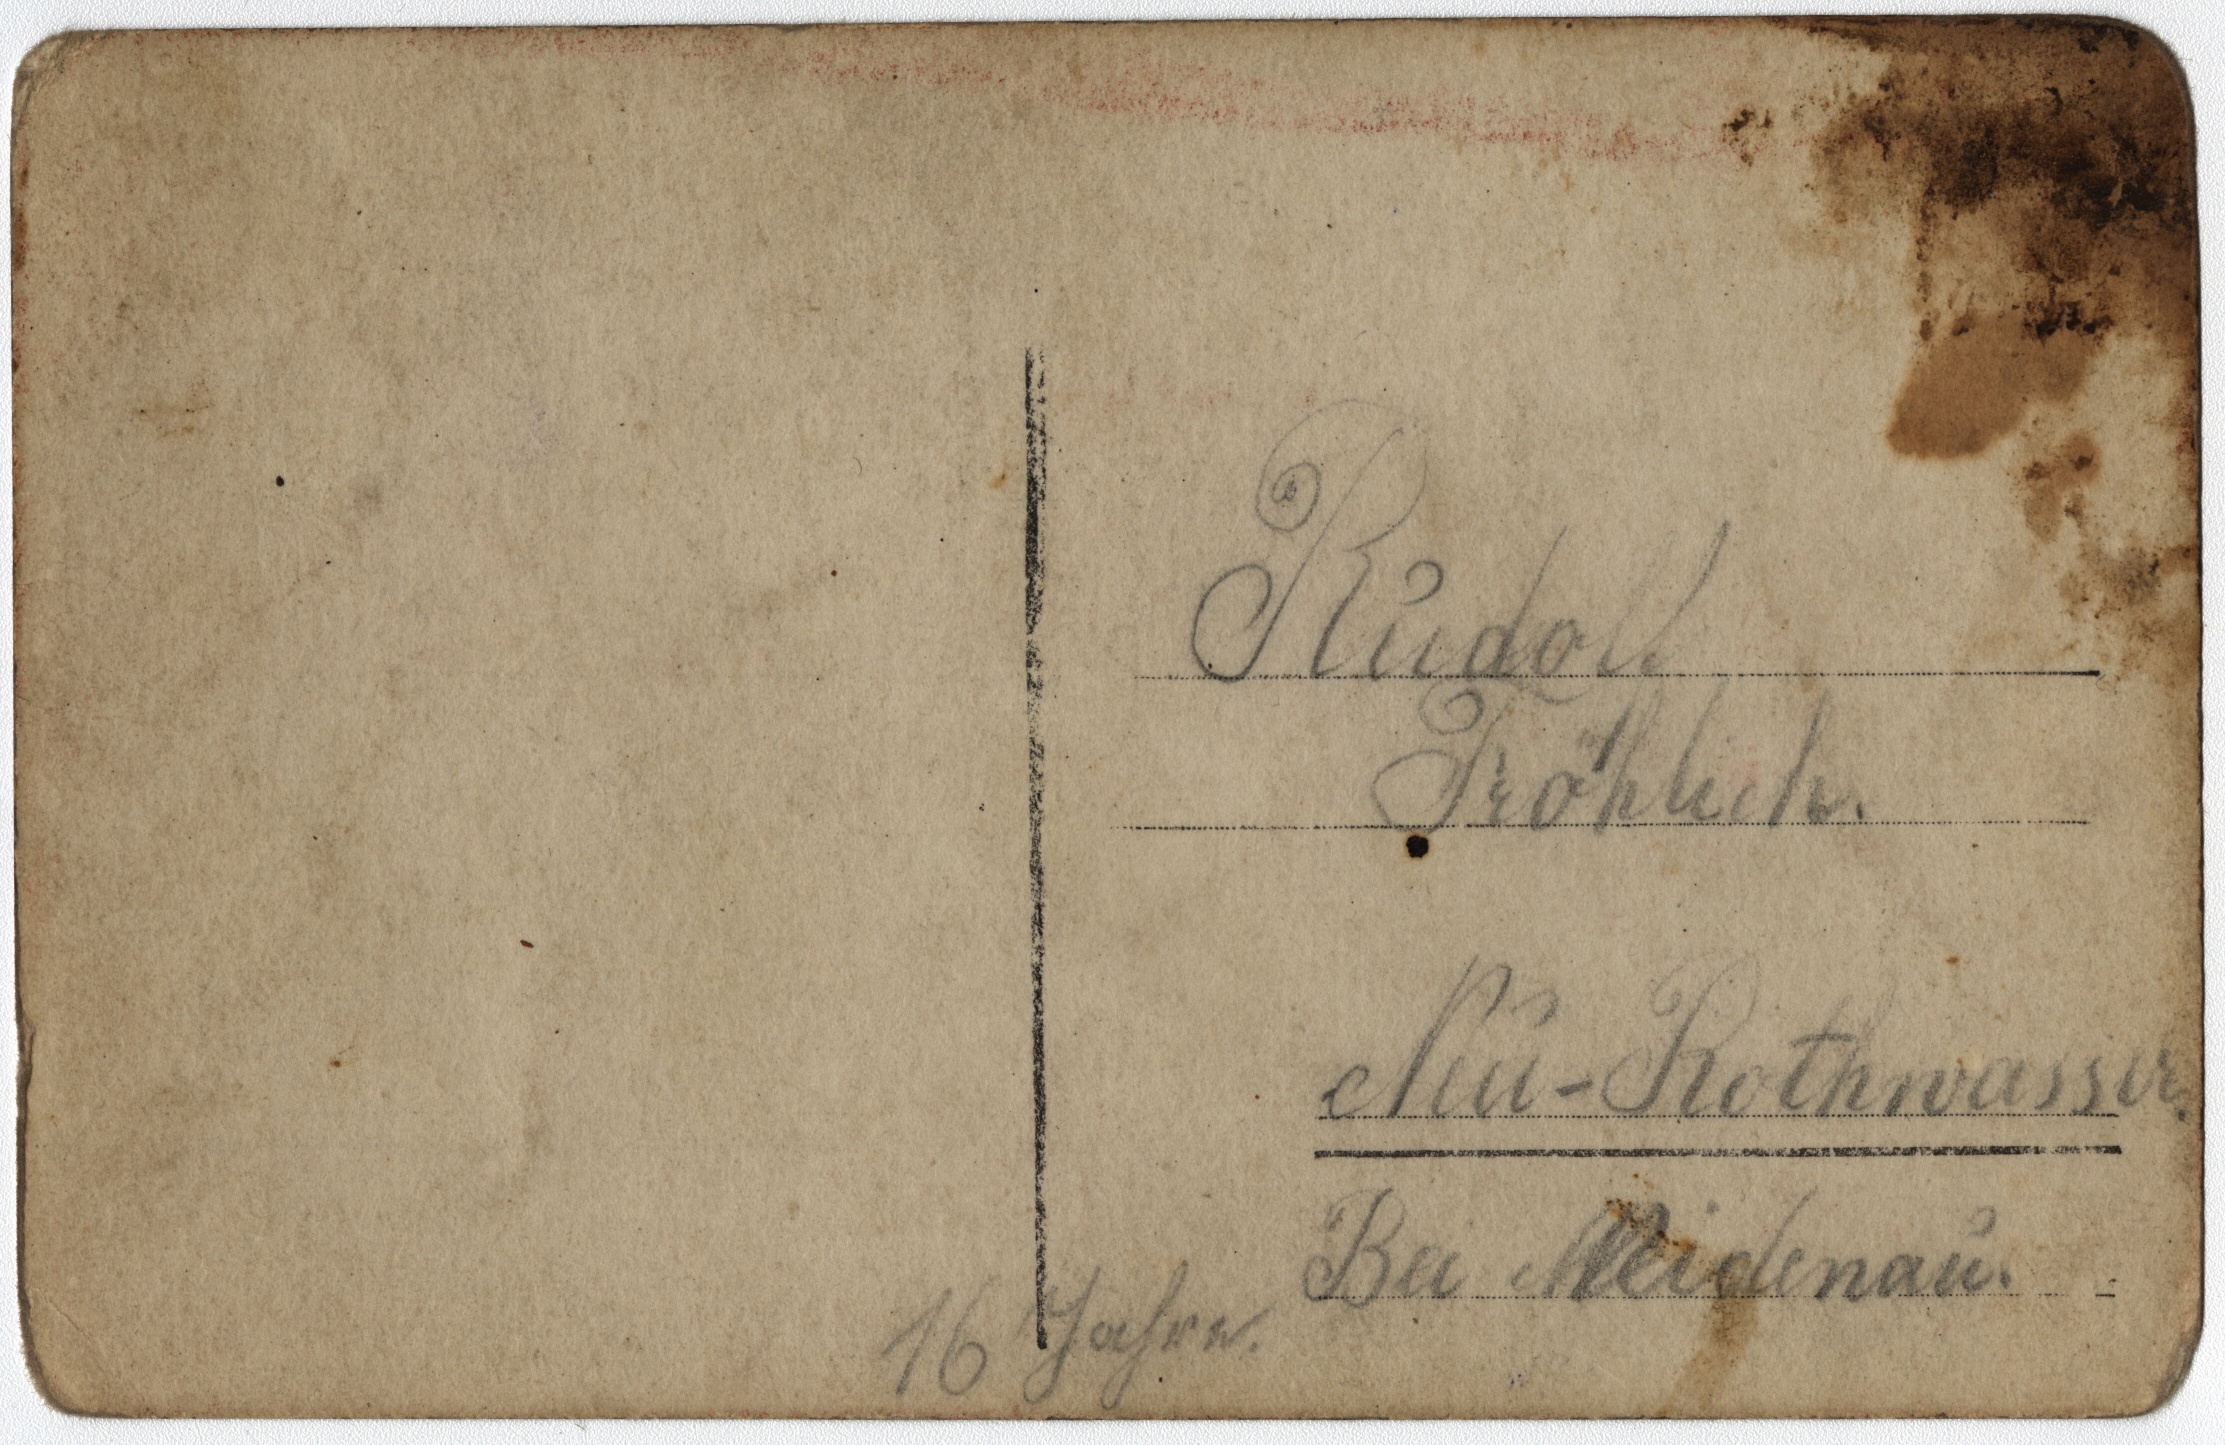 Rudolf
Fröhlich.
Neu-Rothwasser.
Bei Weidenau.
16 Jahre.